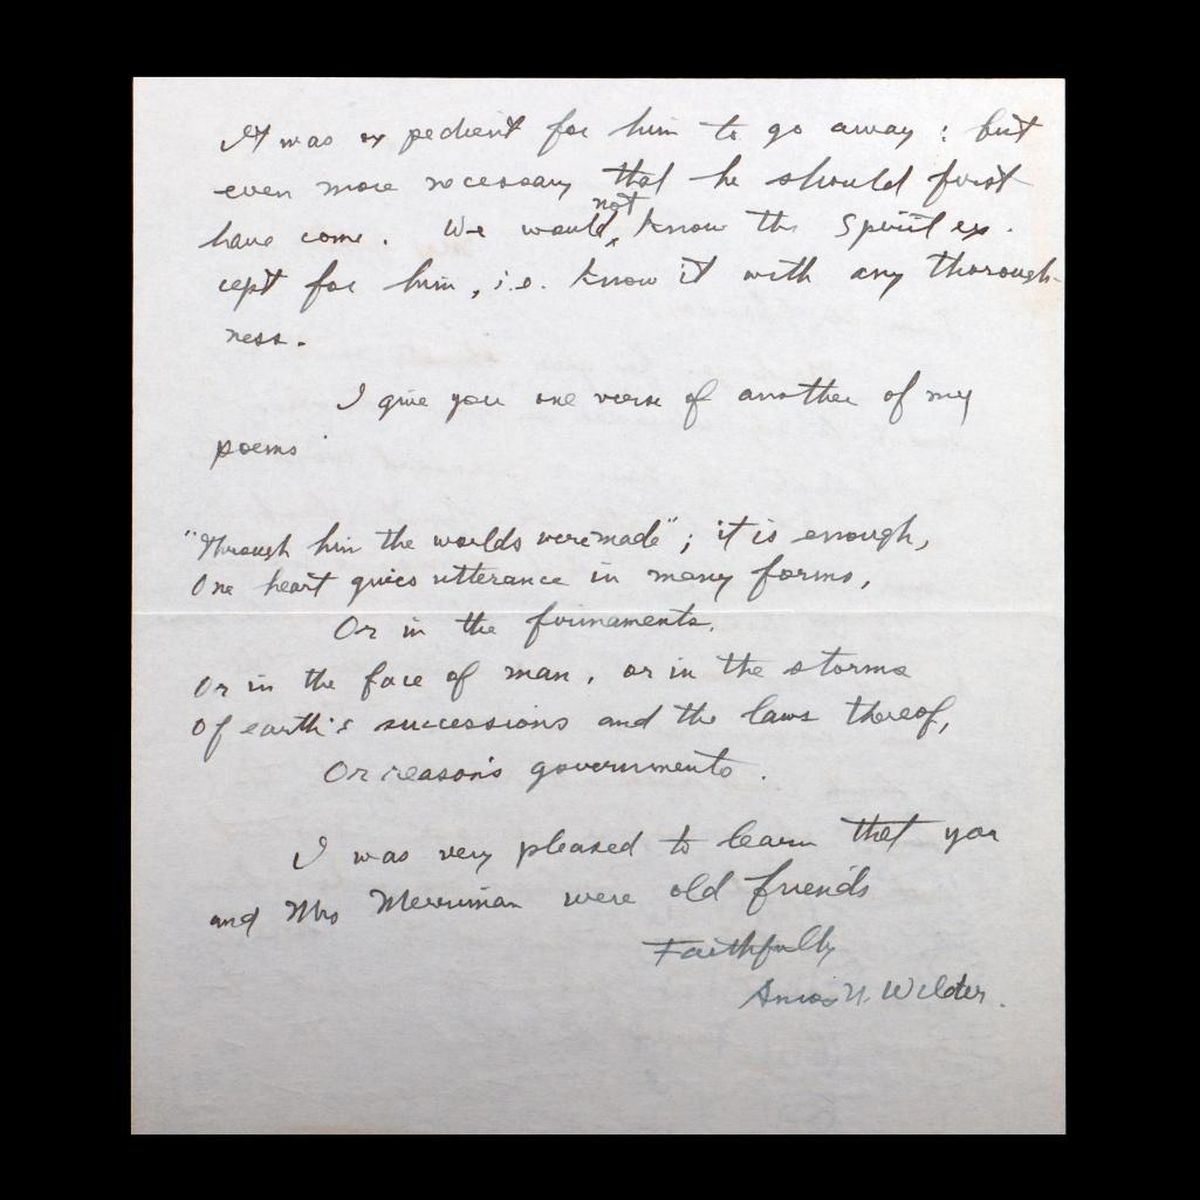 It was expedient for him to go away; but
even more necessary that he should first
have come. We would not know the Spirit ex-
cept for him, i.e. know it with any thorough-
ness.
I give you one verse of another of my
poems
"Through him the worlds were made"; it is enough,
One heart gives utterance in many forms,
Or in the firmaments,
Or in the face of man, or in the storms
Of earth's successions and the laws thereof,
Or reason's governments.
I was very pleased to learn that you
and Mrs Merriman were old friends
Faithfully
Amos N. Wilder.